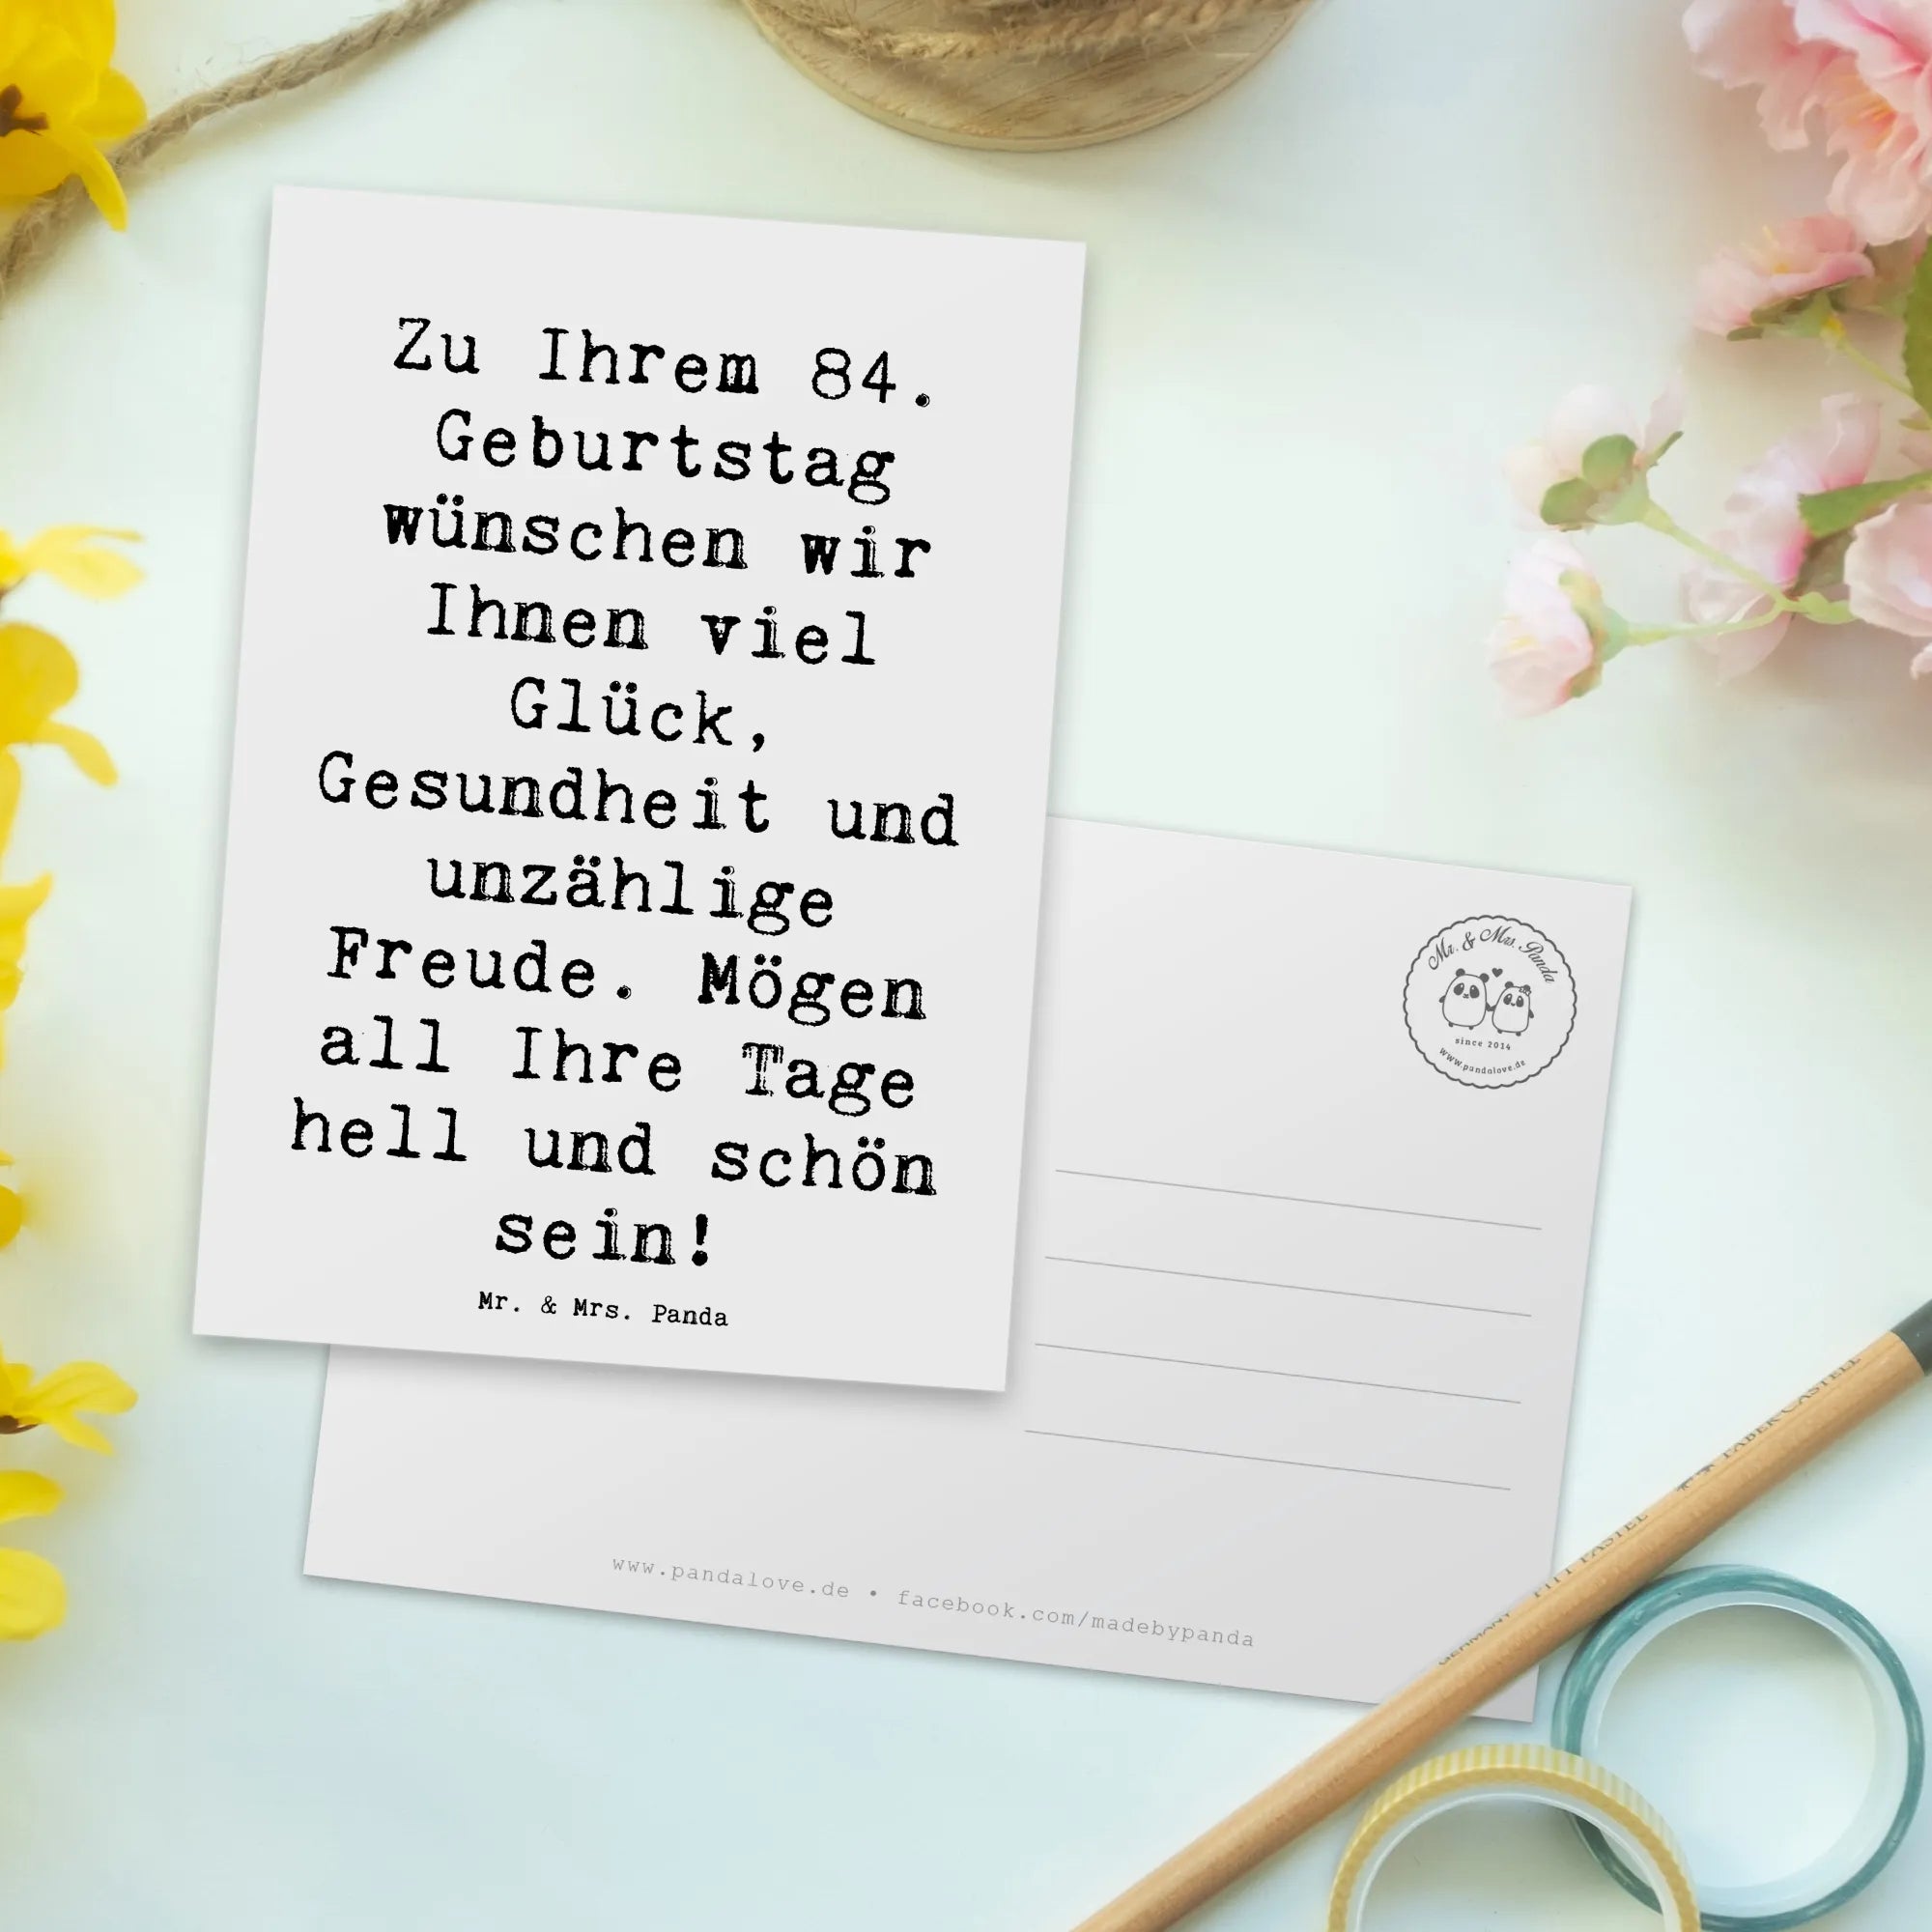 Zu Ihrem 84.
Geburtstag
wünschen wir
Ihnen viel
Glück,
Gesundheit und
unzählige
Freude. Mögen
all Ihre Tage
hell und schön
sein!
Mr. & Mrs. Panda
Mr. & Mrs. Panda
since 2014
www.pandalove.de
www.pandalove.de • facebook.com/madebypanda
GERMANY PITT PASTEL FABER-CASTELL